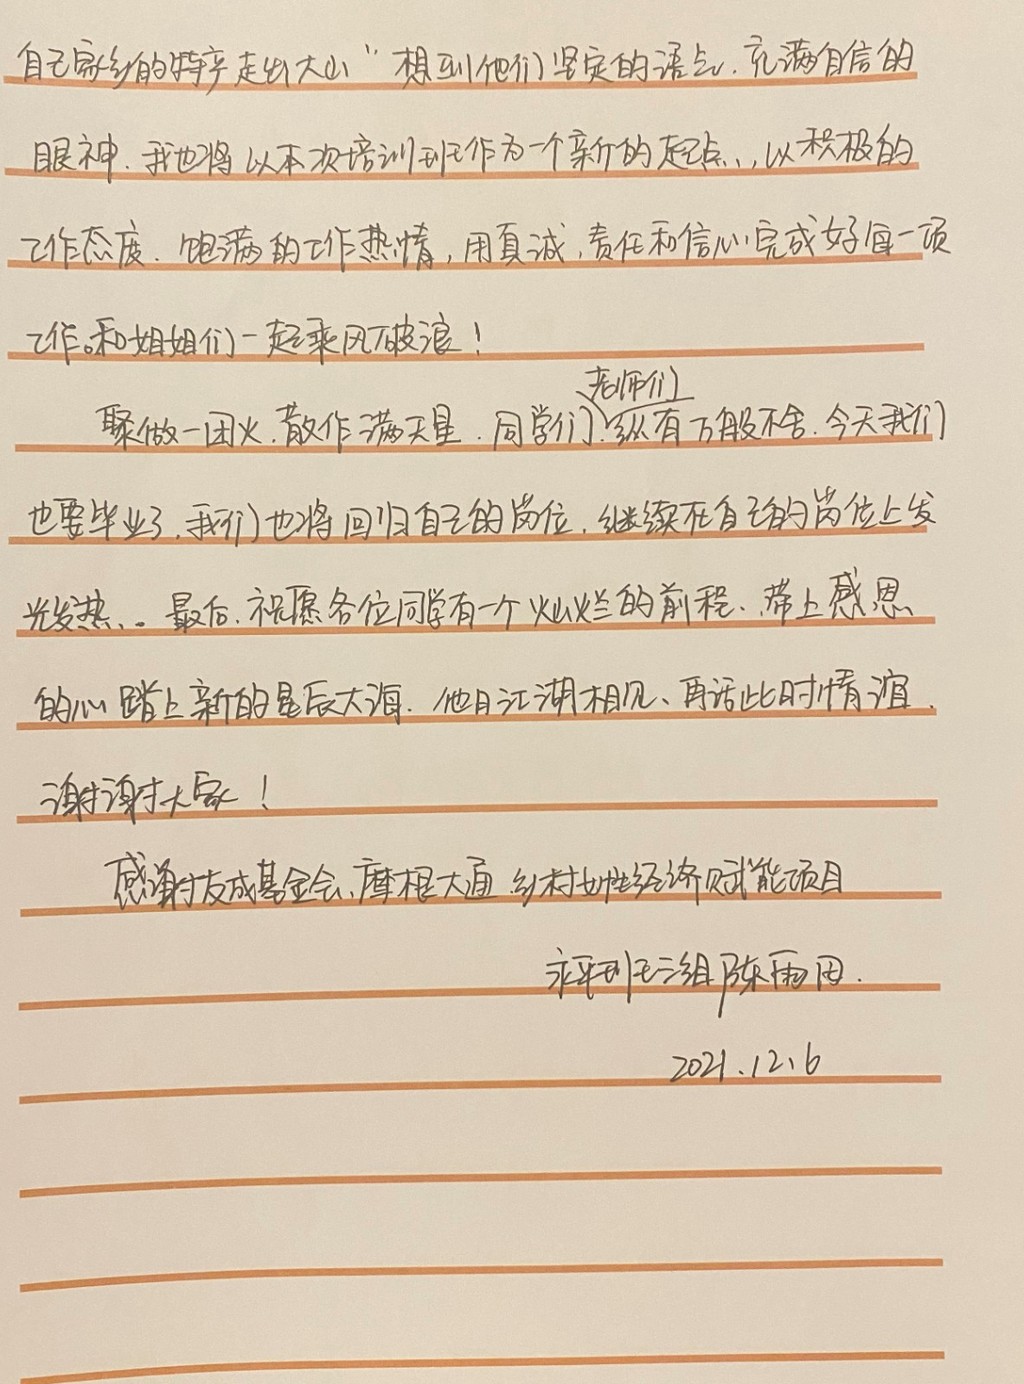 自己家乡的特产走出大山”想到他们坚定的语气,充满自信的
眼神,我也将以本次培训班作为一个新的起点、,以积极的
工作态度、饱满的工作热情,用真诚,责任和信心完成好每一项
工作。和姐姐们一起乘风破浪!
老师们
聚做一团火,散作满天星,同学们,纵有万般不舍,今天我们
也要毕业了,我们也将回归自己的岗位,继续在自己的岗位上发
光发热、。最后,祝愿各位同学有一个灿烂的前程、带上感恩
的心踏上新的星辰大海,他日江湖相见、再话此时情谊.
谢谢大家!
感谢友成基金会、摩根大通 乡村女性经济赋能项目
永平班三组陈雨
2021.12.6